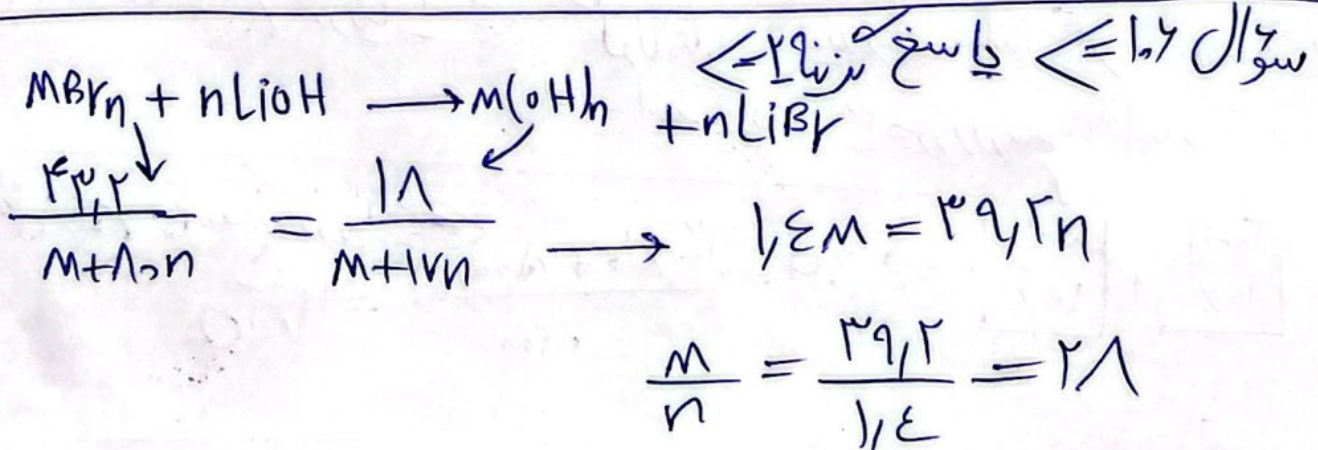 سؤال ۱۰۶ => پاسخ گزینه ۲ =>
MBrn + nLiOH ⟶ M(OH)n + nLiBr
۴۳,۲ / M+۸۰n = ۱۸ / M+۱۷n ⟶ ۱,۴M = ۳۹,۲n
M / n = ۳۹,۲ / ۱,۴ = ۲۸